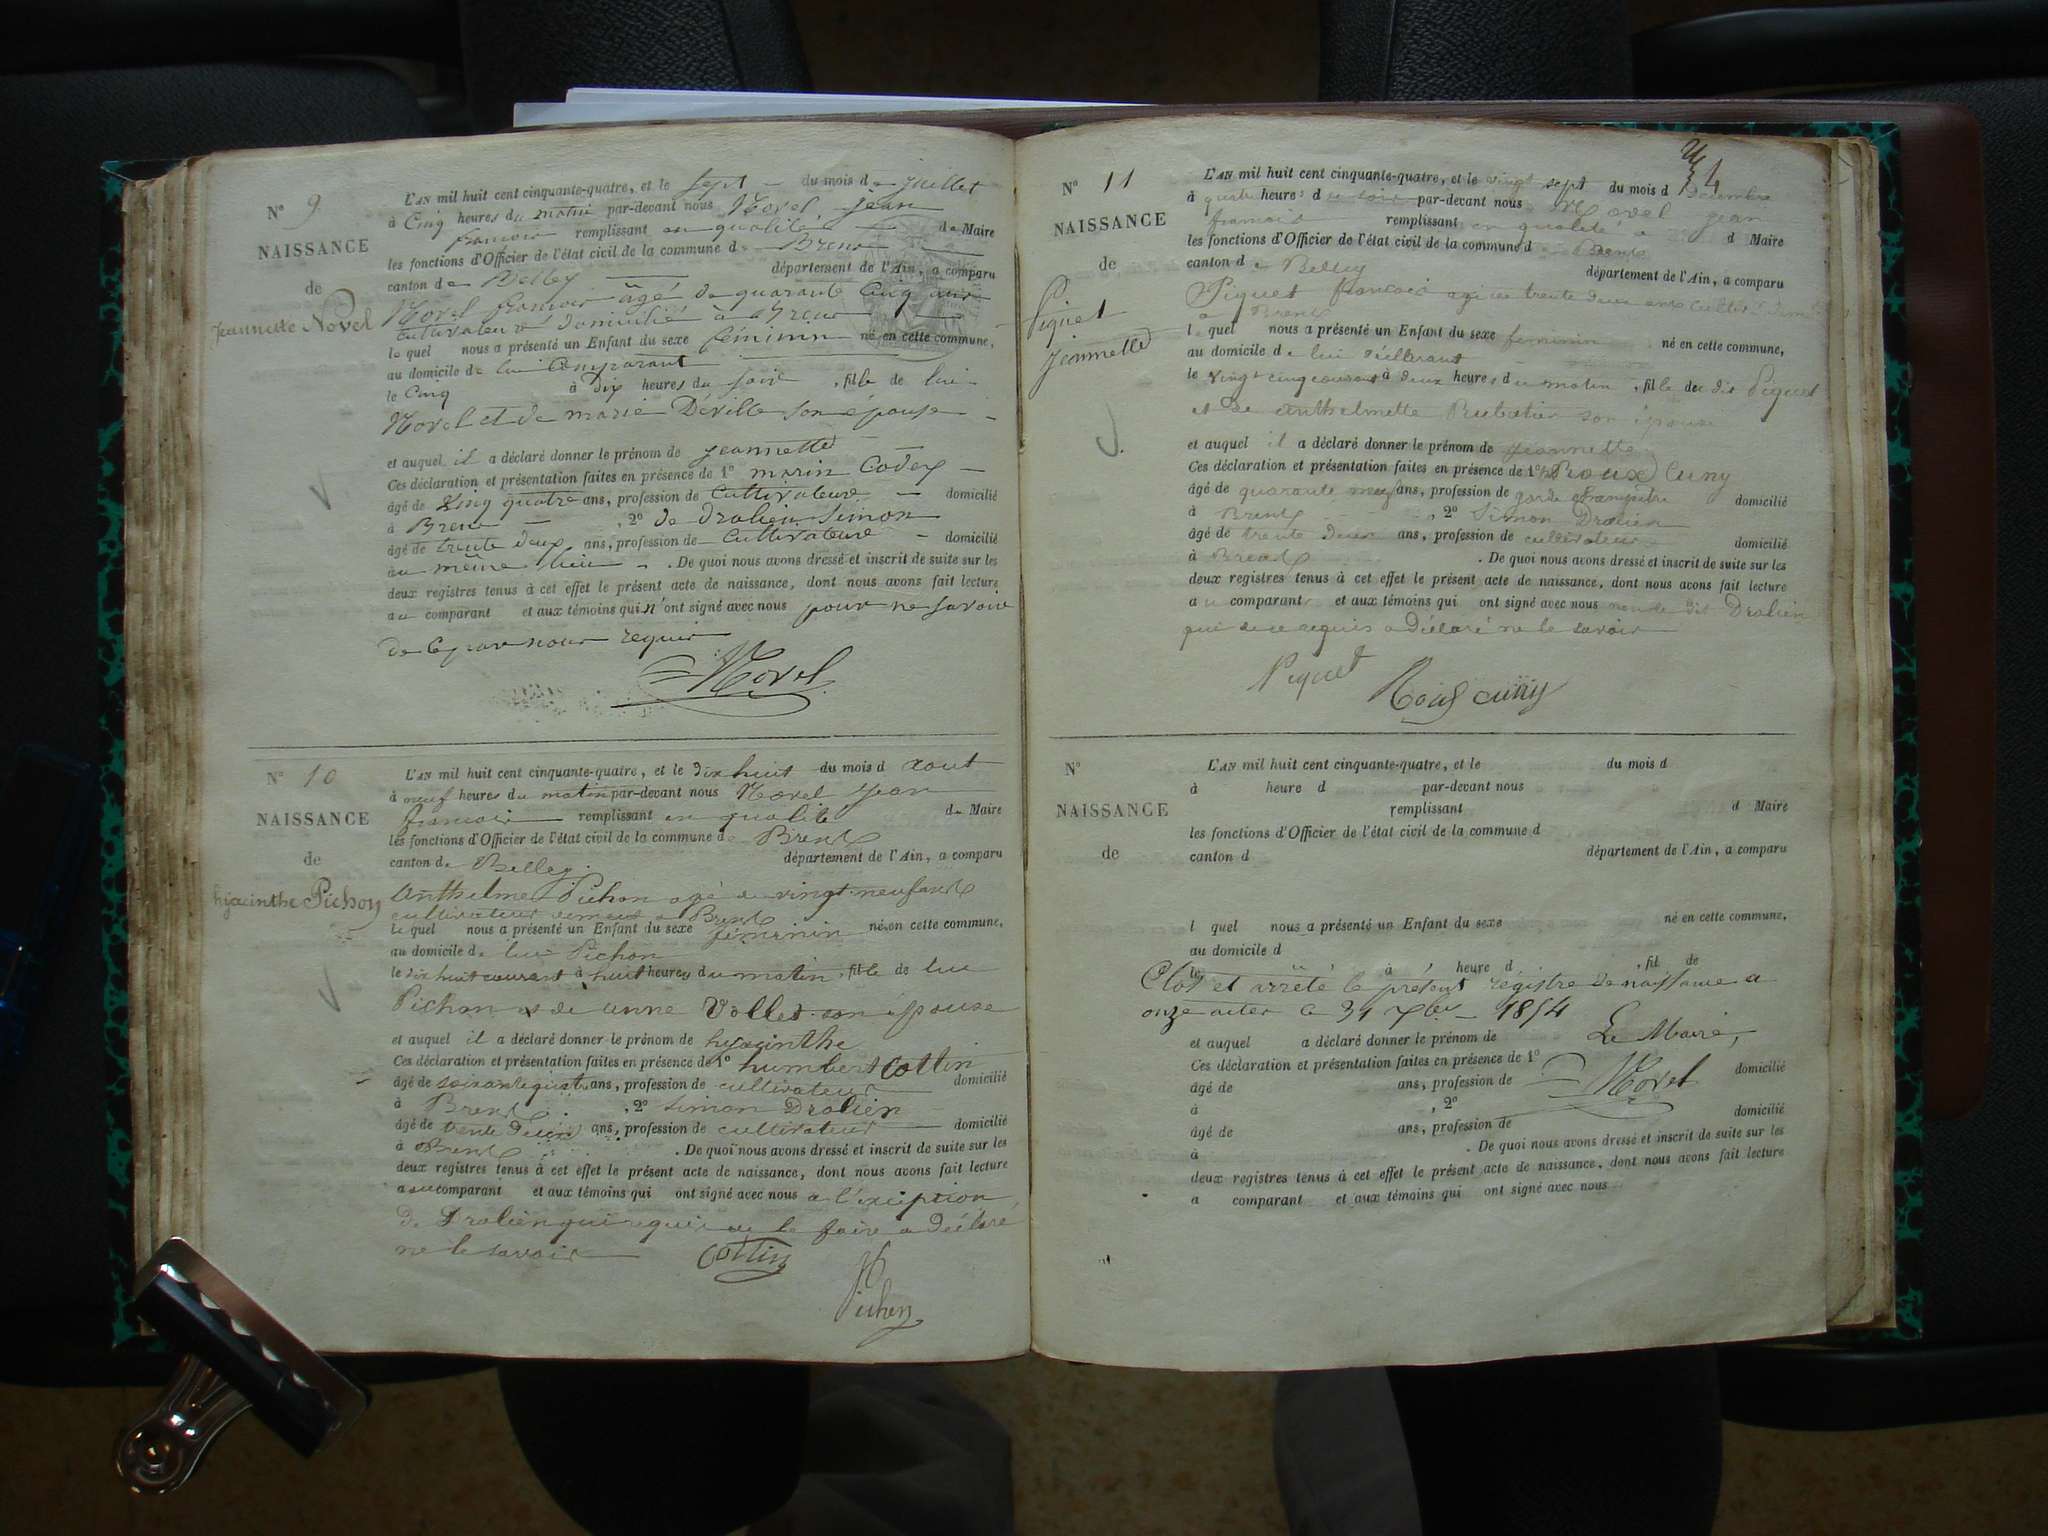 N° 9
NAISSANCE
de
Jeannette Novel
L'AN mil huit cent cinquante-quatre, et le sept du mois de juillet
à Cinq heures du matin par-devant nous Novel jean
francois remplissant en qualité de Maire
les fonctions d'Officier de l'état civil de la commune de Brens
canton de Belley département de l'Ain, a comparu
Novel francois âgé de quarante Cinq ans
cultivateur domicilié à Brens
lequel nous a présenté un Enfant du sexe féminin né en cette commune,
au domicile de lui Comparant
le Cinq à Dix heures du soir, fille de lui
Novel et de marie Déville son épouse
et auquel il a déclaré donner le prénom de jeannette
Ces déclaration et présentation faites en présence de 1° marin Codex
âgé de quatre ans, profession de Cultivateur domicilié
à Brens, 2° de Dralien Simon
âgé de trente deux ans, profession de Cultivateur domicilié
au même lieu. De quoi nous avons dressé et inscrit de suite sur les
deux registres tenus à cet effet le présent acte de naissance, dont nous avons fait lecture
au comparant et aux témoins qui n'ont signé avec nous pour ne savoir
de ce par nous requis
Novel
N° 10
NAISSANCE
de
hyacinthe Pichon
L'AN mil huit cent cinquante-quatre, et le dix huit du mois d aout
à neuf heures du matin par-devant nous Novel jean
francois remplissant en qualité de Maire
les fonctions d'Officier de l'état civil de la commune de Brens
canton de Belley département de l'Ain, a comparu
Anthelme Pichon agé de vingt-neuf ans
cultivateur demeurt à Brens
lequel nous a présenté un Enfant du sexe féminin né en cette commune,
au domicile de lui Pichon
le dix huit courant à huit heures du matin, fille de lui
Pichon et de anne Vollet son épouse
et auquel il a déclaré donner le prénom de hyacinthe
Ces déclaration et présentation faites en présence de 1° humbert Cottin
âgé de soixante quatre ans, profession de cultivateur domicilié
à Brens, 2° Simon Dralien
âgé de trente deux ans, profession de cultivateur domicilié
à Brens. De quoi nous avons dressé et inscrit de suite sur les
deux registres tenus à cet effet le présent acte de naissance, dont nous avons fait lecture
au comparant et aux témoins qui ont signé avec nous a l'exception
de Dralien qui requis de le faire a déclaré
ne le savoir
Cottin
Pichon
N° 11
NAISSANCE
de
Piquet
Jeannette
L'AN mil huit cent cinquante-quatre, et le vingt sept du mois d Décembre
à quatre heures du soir par-devant nous Novel jean
francois remplissant en qualité d Maire
les fonctions d'Officier de l'état civil de la commune d Brens
canton de Belley département de l'Ain, a comparu
Piquet francois agé de trente deux ans
à Brens
lequel nous a présenté un Enfant du sexe féminin né en cette commune,
au domicile de lui déclarant
le vingt cinq courant à deux heures du matin, fille de dit Piquet
et de anthelmette Rubatier son épouse
et auquel il a déclaré donner le prénom de jeannette
Ces déclaration et présentation faites en présence de 1° Roux Cuny
âgé de quarante neuf ans, profession de garde champetre domicilié
à Brens, 2° Simon Dralien
âgé de trente deux ans, profession de cultivateur domicilié
à Brens. De quoi nous avons dressé et inscrit de suite sur les
deux registres tenus à cet effet le présent acte de naissance, dont nous avons fait lecture
au comparant et aux témoins qui ont signé avec nous non le dit Dralien
qui de ce requis a déclaré ne le savoir
Piquet
Roux cuny
N°
NAISSANCE
de
L'AN mil huit cent cinquante-quatre, et le du mois d
à heure d par-devant nous
remplissant d Maire
les fonctions d'Officier de l'état civil de la commune d
canton d département de l'Ain, a comparu
l quel nous a présenté un Enfant du sexe né en cette commune,
au domicile d
le à heure d, fil de
Clos et arrêté le présent régistre de naissance a
onze actes le 31 Xbre 1854
et auquel a déclaré donner le prénom de
Le Maire,
Ces déclaration et présentation faites en présence de 1°
Novel
âgé de ans, profession de domicilié
à, 2°
âgé de ans, profession de domicilié
à. De quoi nous avons dressé et inscrit de suite sur les
deux registres tenus à cet effet le présent acte de naissance, dont nous avons fait lecture
a comparant et aux témoins qui ont signé avec nous